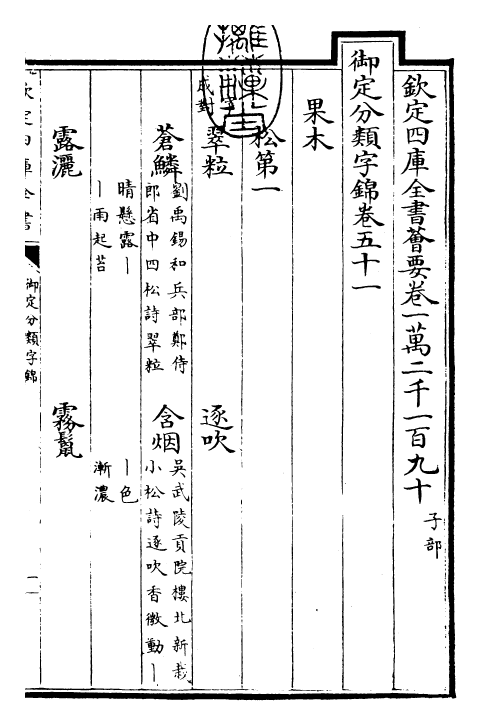 欽定四庫全書薈要卷一萬二千一百九十 子部
御定分類字錦卷五十一
果木
松第一
成對
翠粒 逐吹
蒼鱗 劉禹錫和兵部鄭侍
郎省中四松詩翠粒
晴懸露丨
丨雨起苔
含烟 吳武陵貢院樓北新栽
小松詩逐吹香微動丨
丨色
漸濃
露灑 霧鬣
欽定四庫全書
御定分類字錦
一